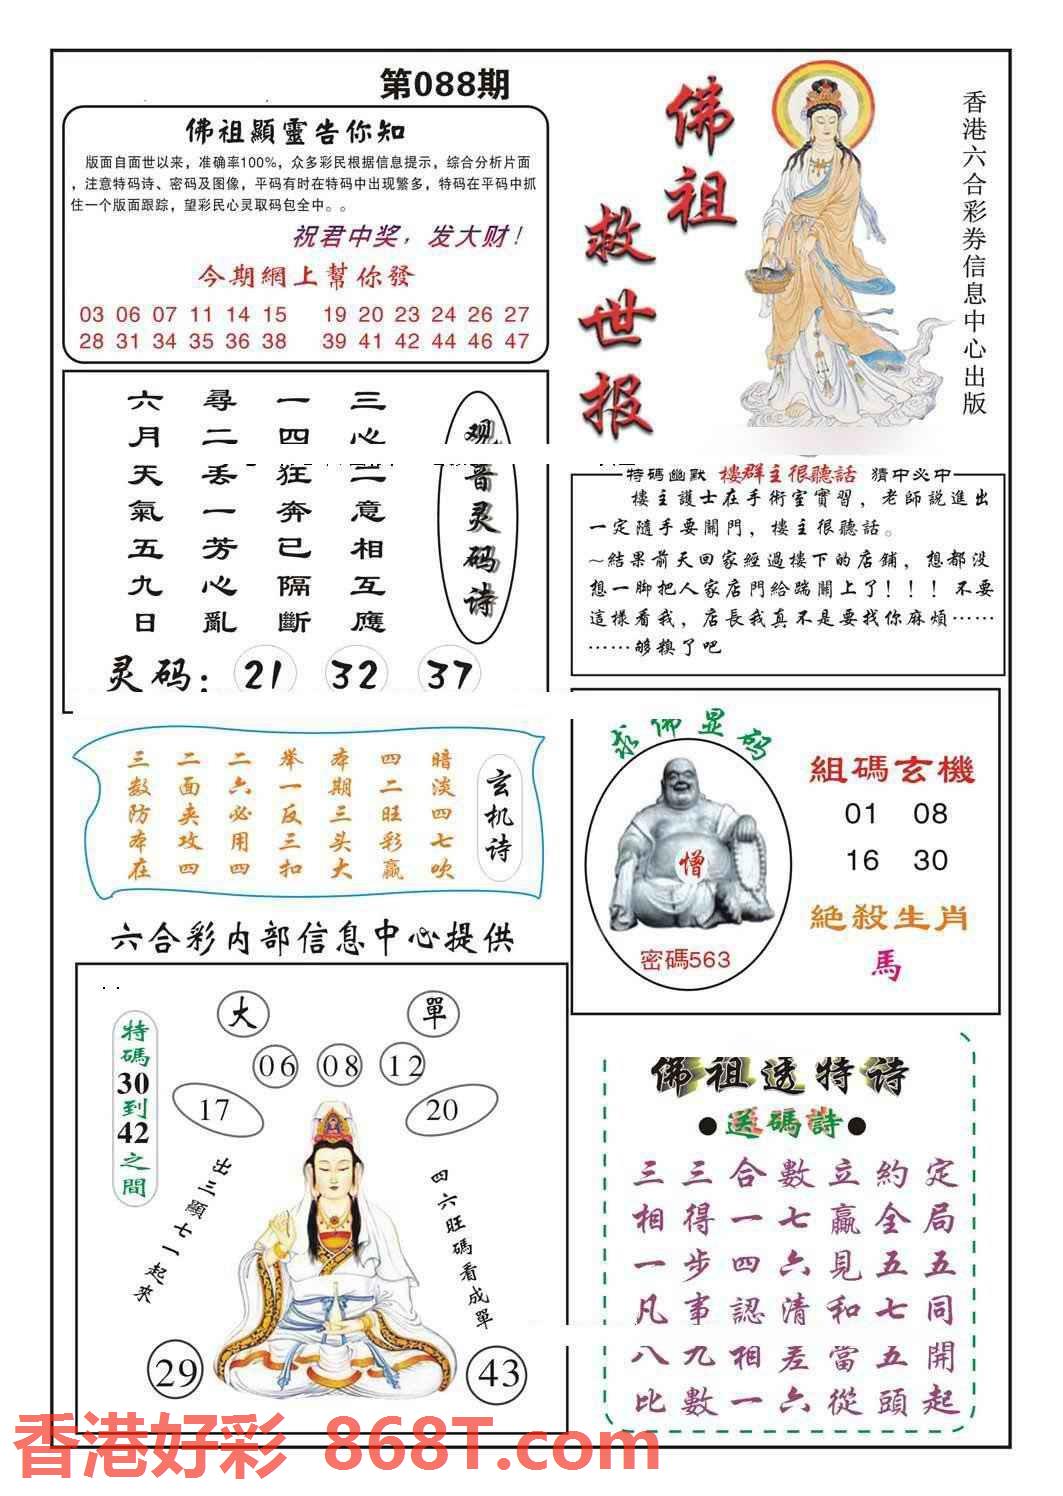 第088期
佛祖顯靈告你知
版面自面世以来，准确率100%，众多彩民根据信息提示，综合分析片面
，注意特码诗、密码及图像，平码有时在特码中出现繁多，特码在平码中抓
住一个版面跟踪，望彩民心灵取码包全中。。
祝君中奖，发大财！
今期網上幫你發
03 06 07 11 14 15 19 20 23 24 26 27
28 31 34 35 36 38 39 41 42 44 46 47
佛祖
救世报
香港六合彩券信息中心出版
观音灵码诗
三心二意相互應
一四狂奔已隔斷
尋二丢一芳心亂
六月天氣五九日
灵码：21 32 37
特碼幽默 樓群主很聽話 猜中必中
樓主護士在手術室實習，老師説進出
一定隨手要關門，樓主很聽話。
～結果前天回家經過樓下的店鋪，想都没
想一脚把人家店門給踹關上了！！！不要
這樣看我，店長我真不是要找你麻煩……
……够糗了吧
玄机诗
暗淡四七吹
四二旺彩赢
本期三头大
举一反三扣
二六必用四
二面夹攻四
三数防本在
求佛显码
憎
密碼563
組碼玄機
01 08
16 30
絶殺生肖
馬
六合彩内部信息中心提供
特碼30到42之間
大
單
06 08 12
17
20
出三顯七一起來
四六旺碼看成單
29
43
佛祖透特诗
●送碼詩●
三三合數立約定
相得一七贏全局
一步四六見五五
凡事認清和七同
八九相差當五開
比數一六從頭起
香港好彩 868T.com